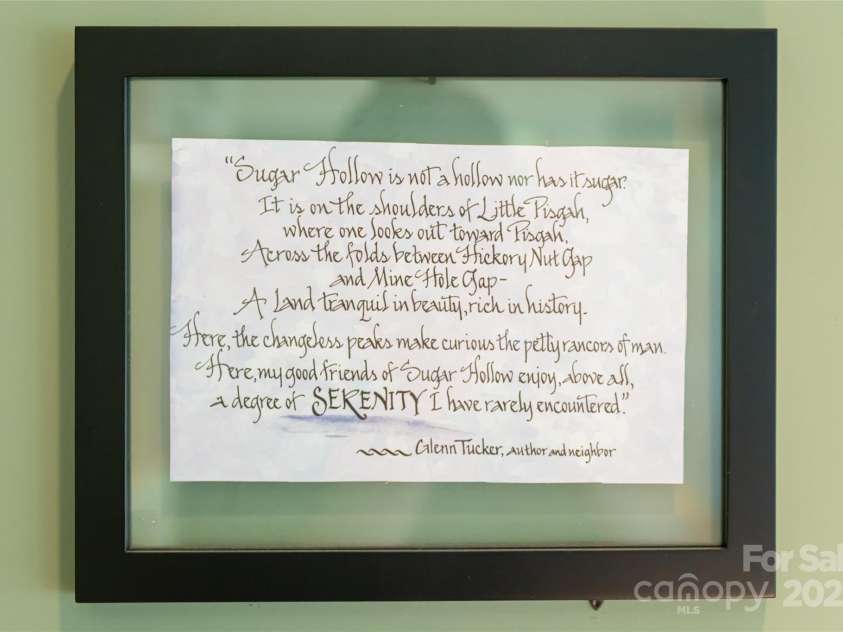 "Sugar Hollow is not a hollow nor has it sugar.
It is on the shoulders of Little Pisgah,
where one looks out toward Pisgah.
Across the folds between Hickory Nut Gap
and Mine Hole Gap-
A Land tranquil in beauty, rich in history.
Here, the changeless peaks make curious the petty rancors of man.
Here, my good friends of Sugar Hollow enjoy, above all,
a degree of SERENITY I have rarely encountered."
Glenn Tucker, author and neighbor
For Sal
canopy 202
MLS